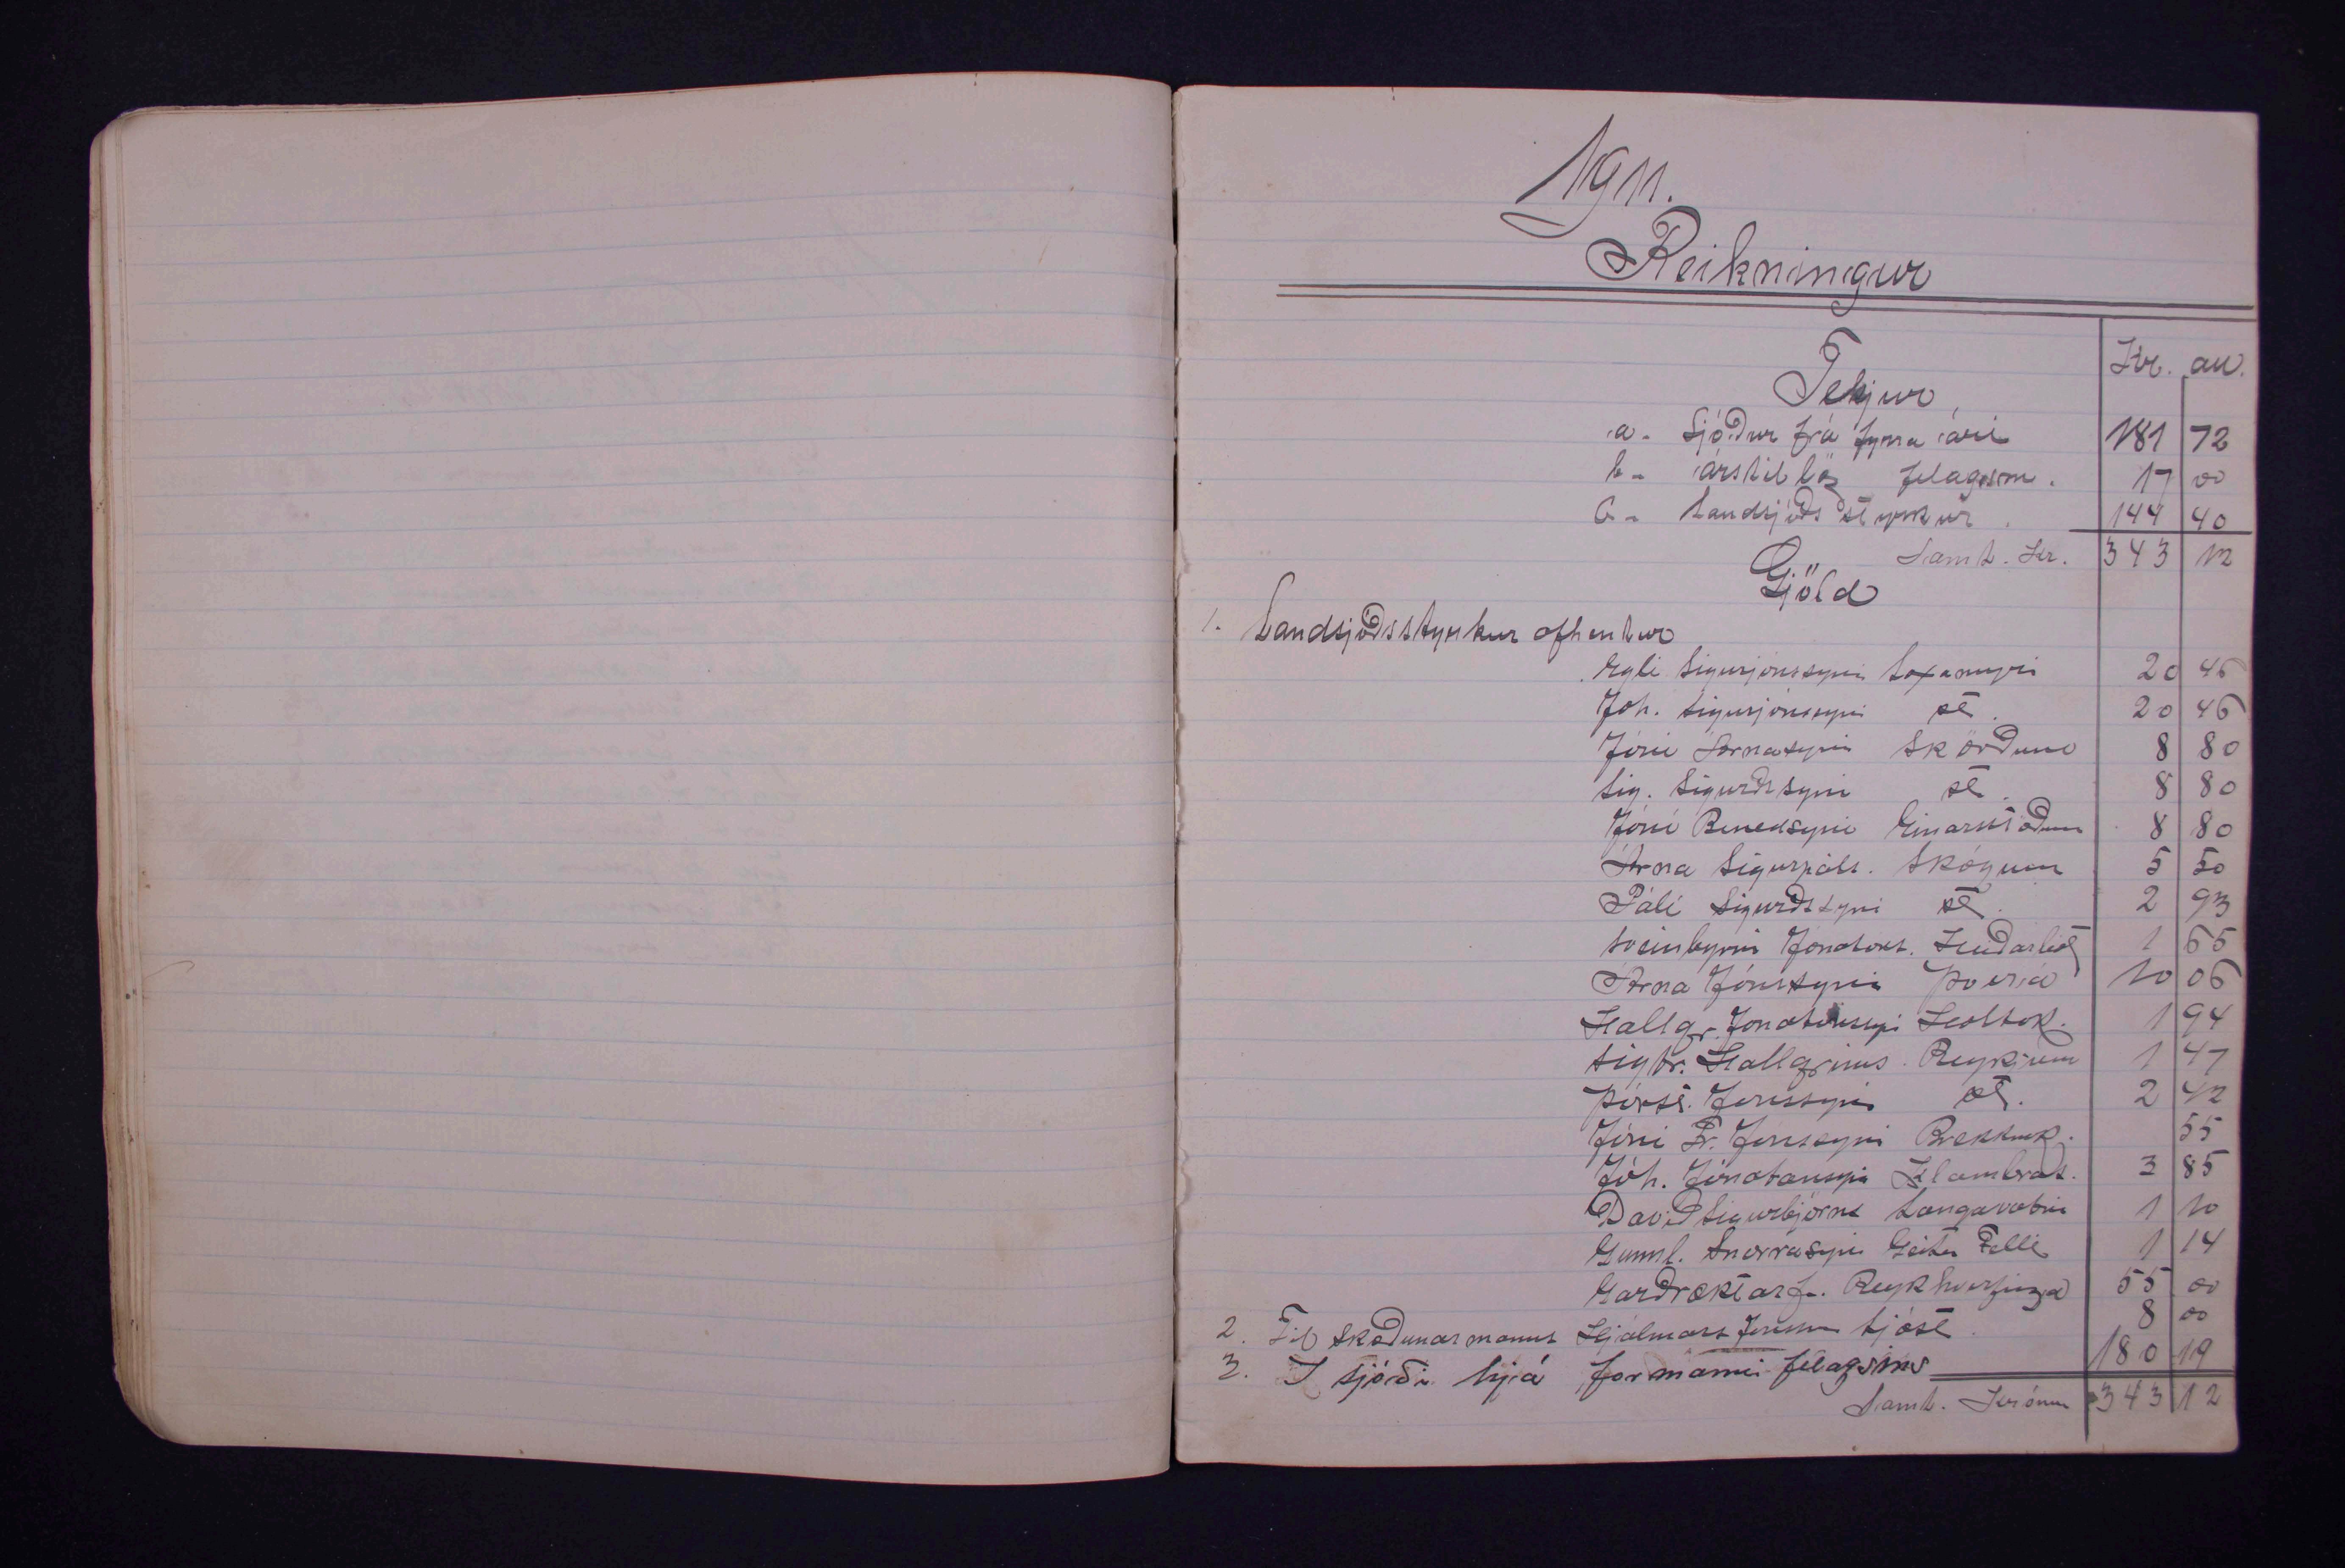 1911.
Reikningur
Kr. au.
Tekjur
a. Sjóður frá fyrra ári 181 72
b. árstillög felagsm. 17 00
c. Landsjóðsstyrkur. 144 40
Samt. Kr. 343 12
Gjöld
1. Landsjóðsstyrkur afhentur
Egli Sigurjónssyni Laxamýri 20 46
Jóh. Sigurjónssyni st. 20 46
Jóni Árnasyni Skörðum 8 80
Sig. Sigurðssyni st. 8 80
Jóni Benedsyni Einarsstöðum 8 80
Árna Sigurpáls. Skógum 5 50
Páli Sigurðssyni st. 2 93
Sveinbyrni Jónatans. Heiðarbót 1 65
Árna Jónssyni Þverá 10 06
Hallgr. Jónatanssyni Holtak. 1 94
Sigtr. Hallgríms. Reykjum 1 47
Þórst. Jónssyni st. 2 42
Jóni Fr. Jónssyni Brekkuk. 55
Jóh. Jónatanssyni Klambras. 3 85
Davíð Sigurbjörns Langavatni 1 10
Gunnl. Snorrasyni Geitafelli 1 14
Garðræktarf. Reykhverfinga 55 00
2. Til skoðunarmanns Hjálmars Jónss. Ljóst. 8 00
3. Í sjóði hjá formanni felagsins 180 19
Samt. Krónur 343 12